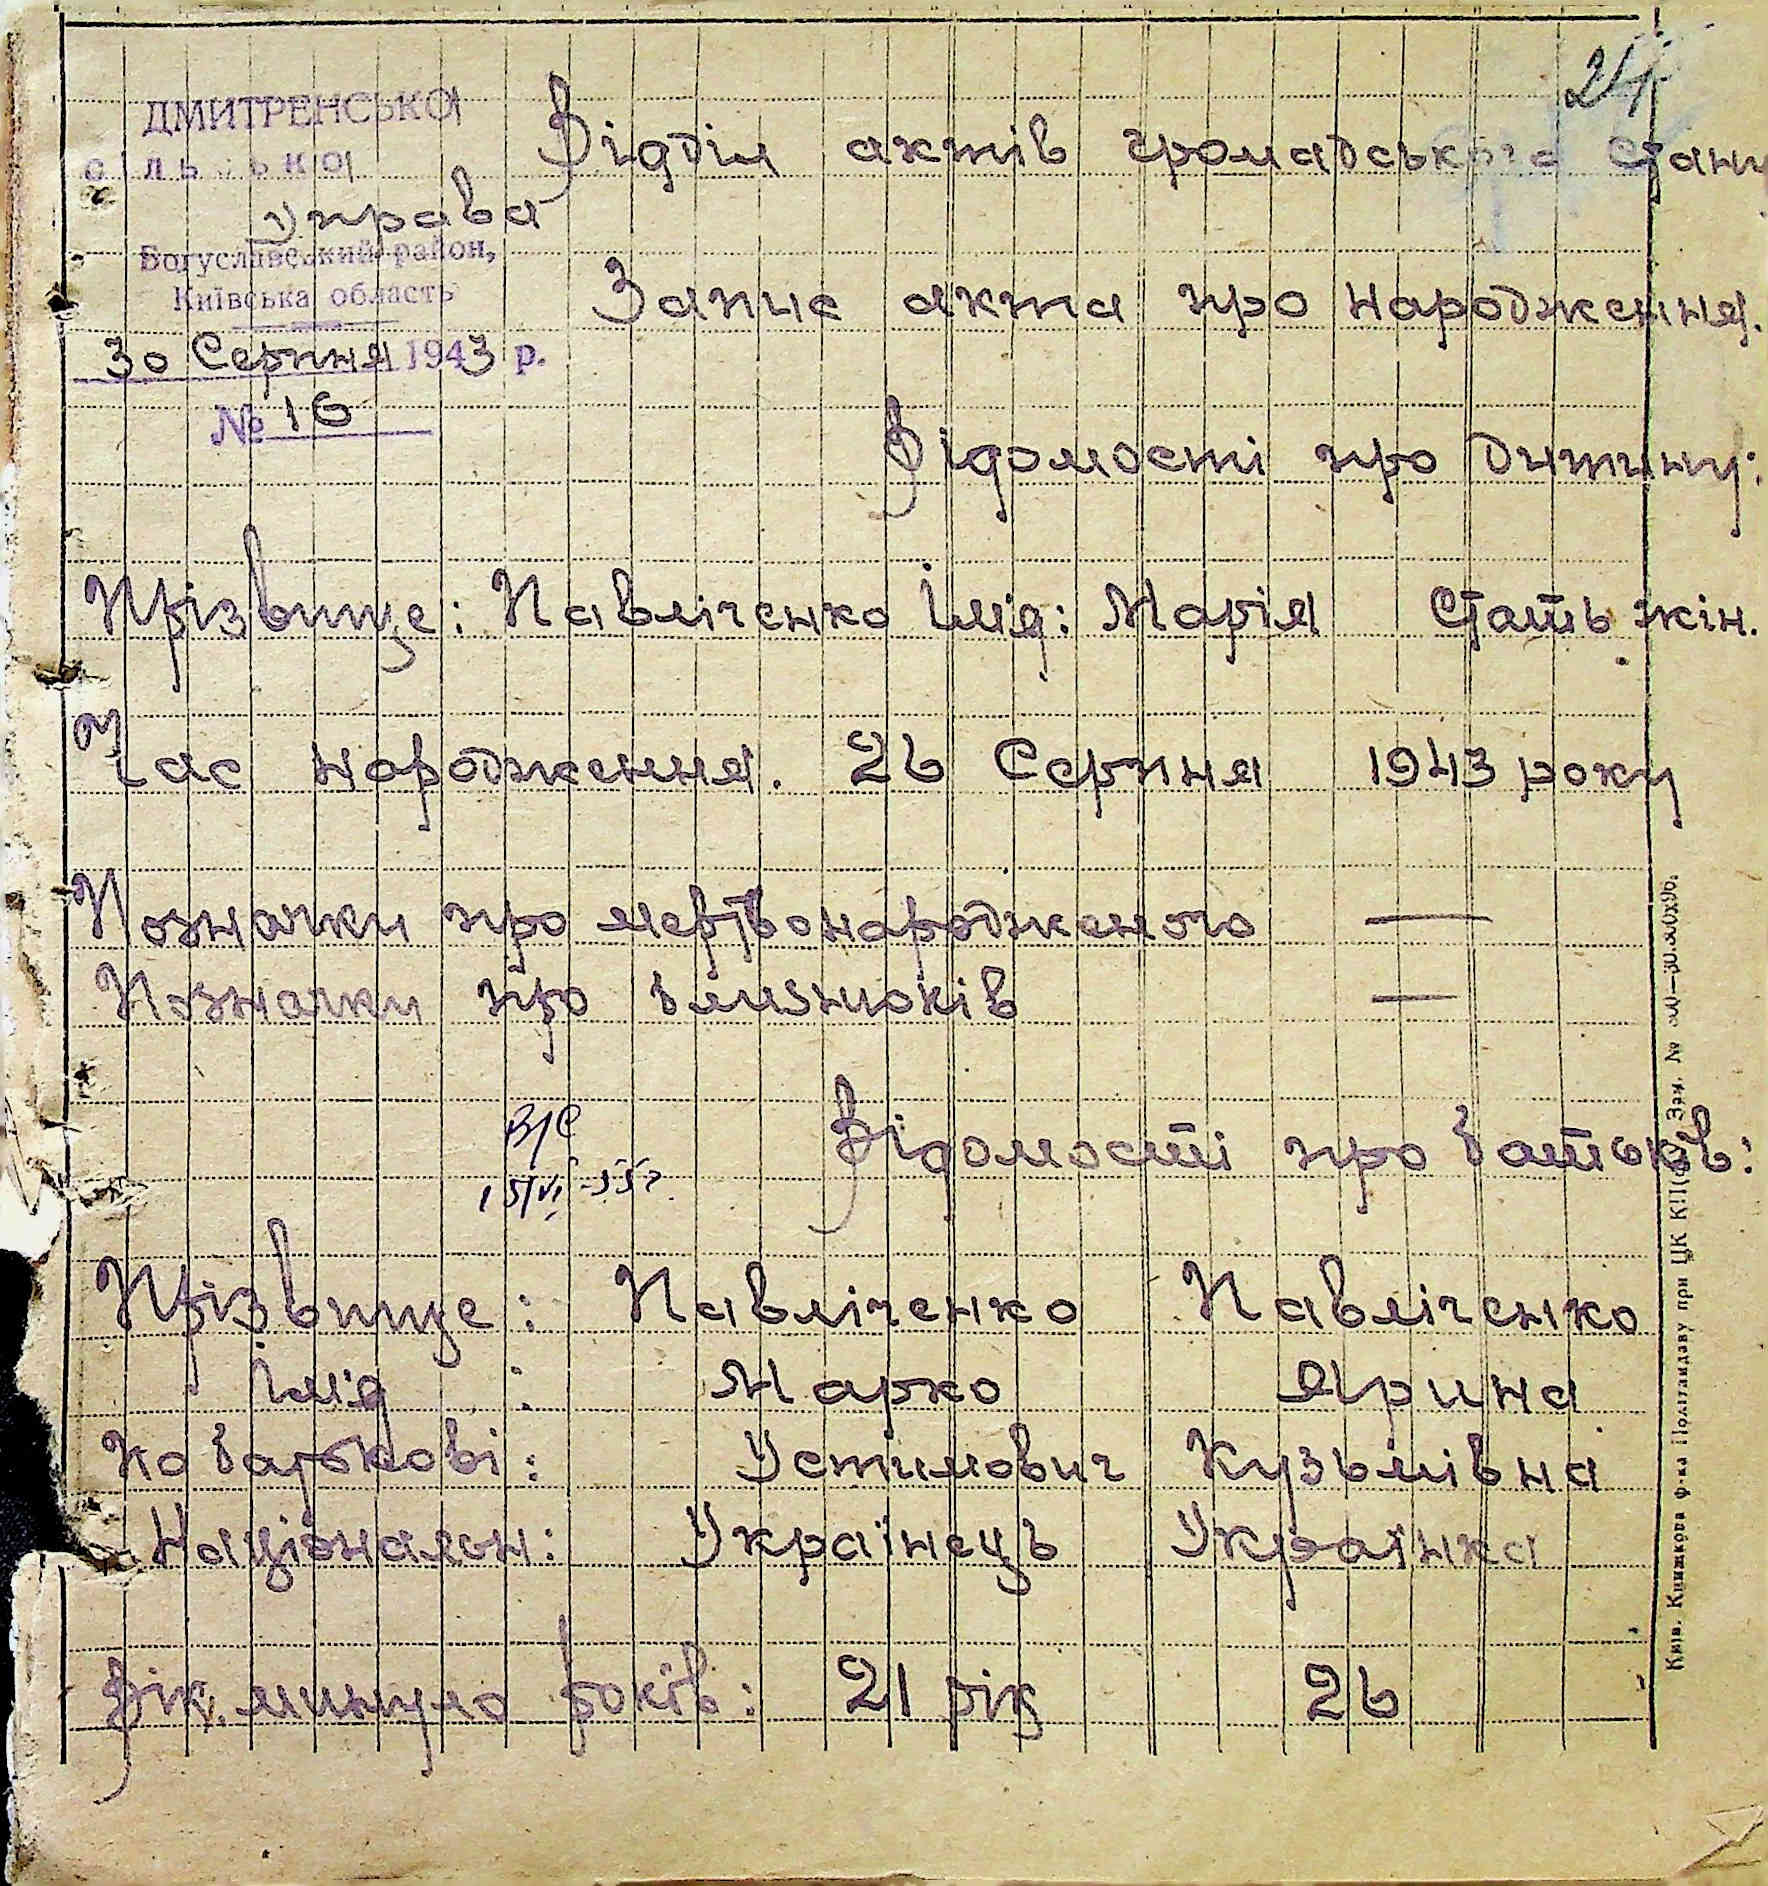 24
ДМИТРЕНСЬКОЇ
Відділ актів громадського стану
управа
Богуславський район,
Київська область
Запис акта про народження.
30 Серпня 1943 р.
№ 16
Відомості про дитину:
Прізвище: Павліченко Імія: Марія Стать жін.
Час народження. 26 Серпня 1943 року
Позначки про мертвонародженого —
Позначки про близнюків —
В/С
Відомості про батьків:
15/VI-55г.
Прізвище: Павліченко Павліченко
Імія : Марко Ярина
По батькові: Устимович Кузьмівна
Національн: Українець Українка
Вік. минуло років: 21 рік 26
Київ. Книжкова ф-ка Політвидаву при ЦК КП(б)У. Зам. №